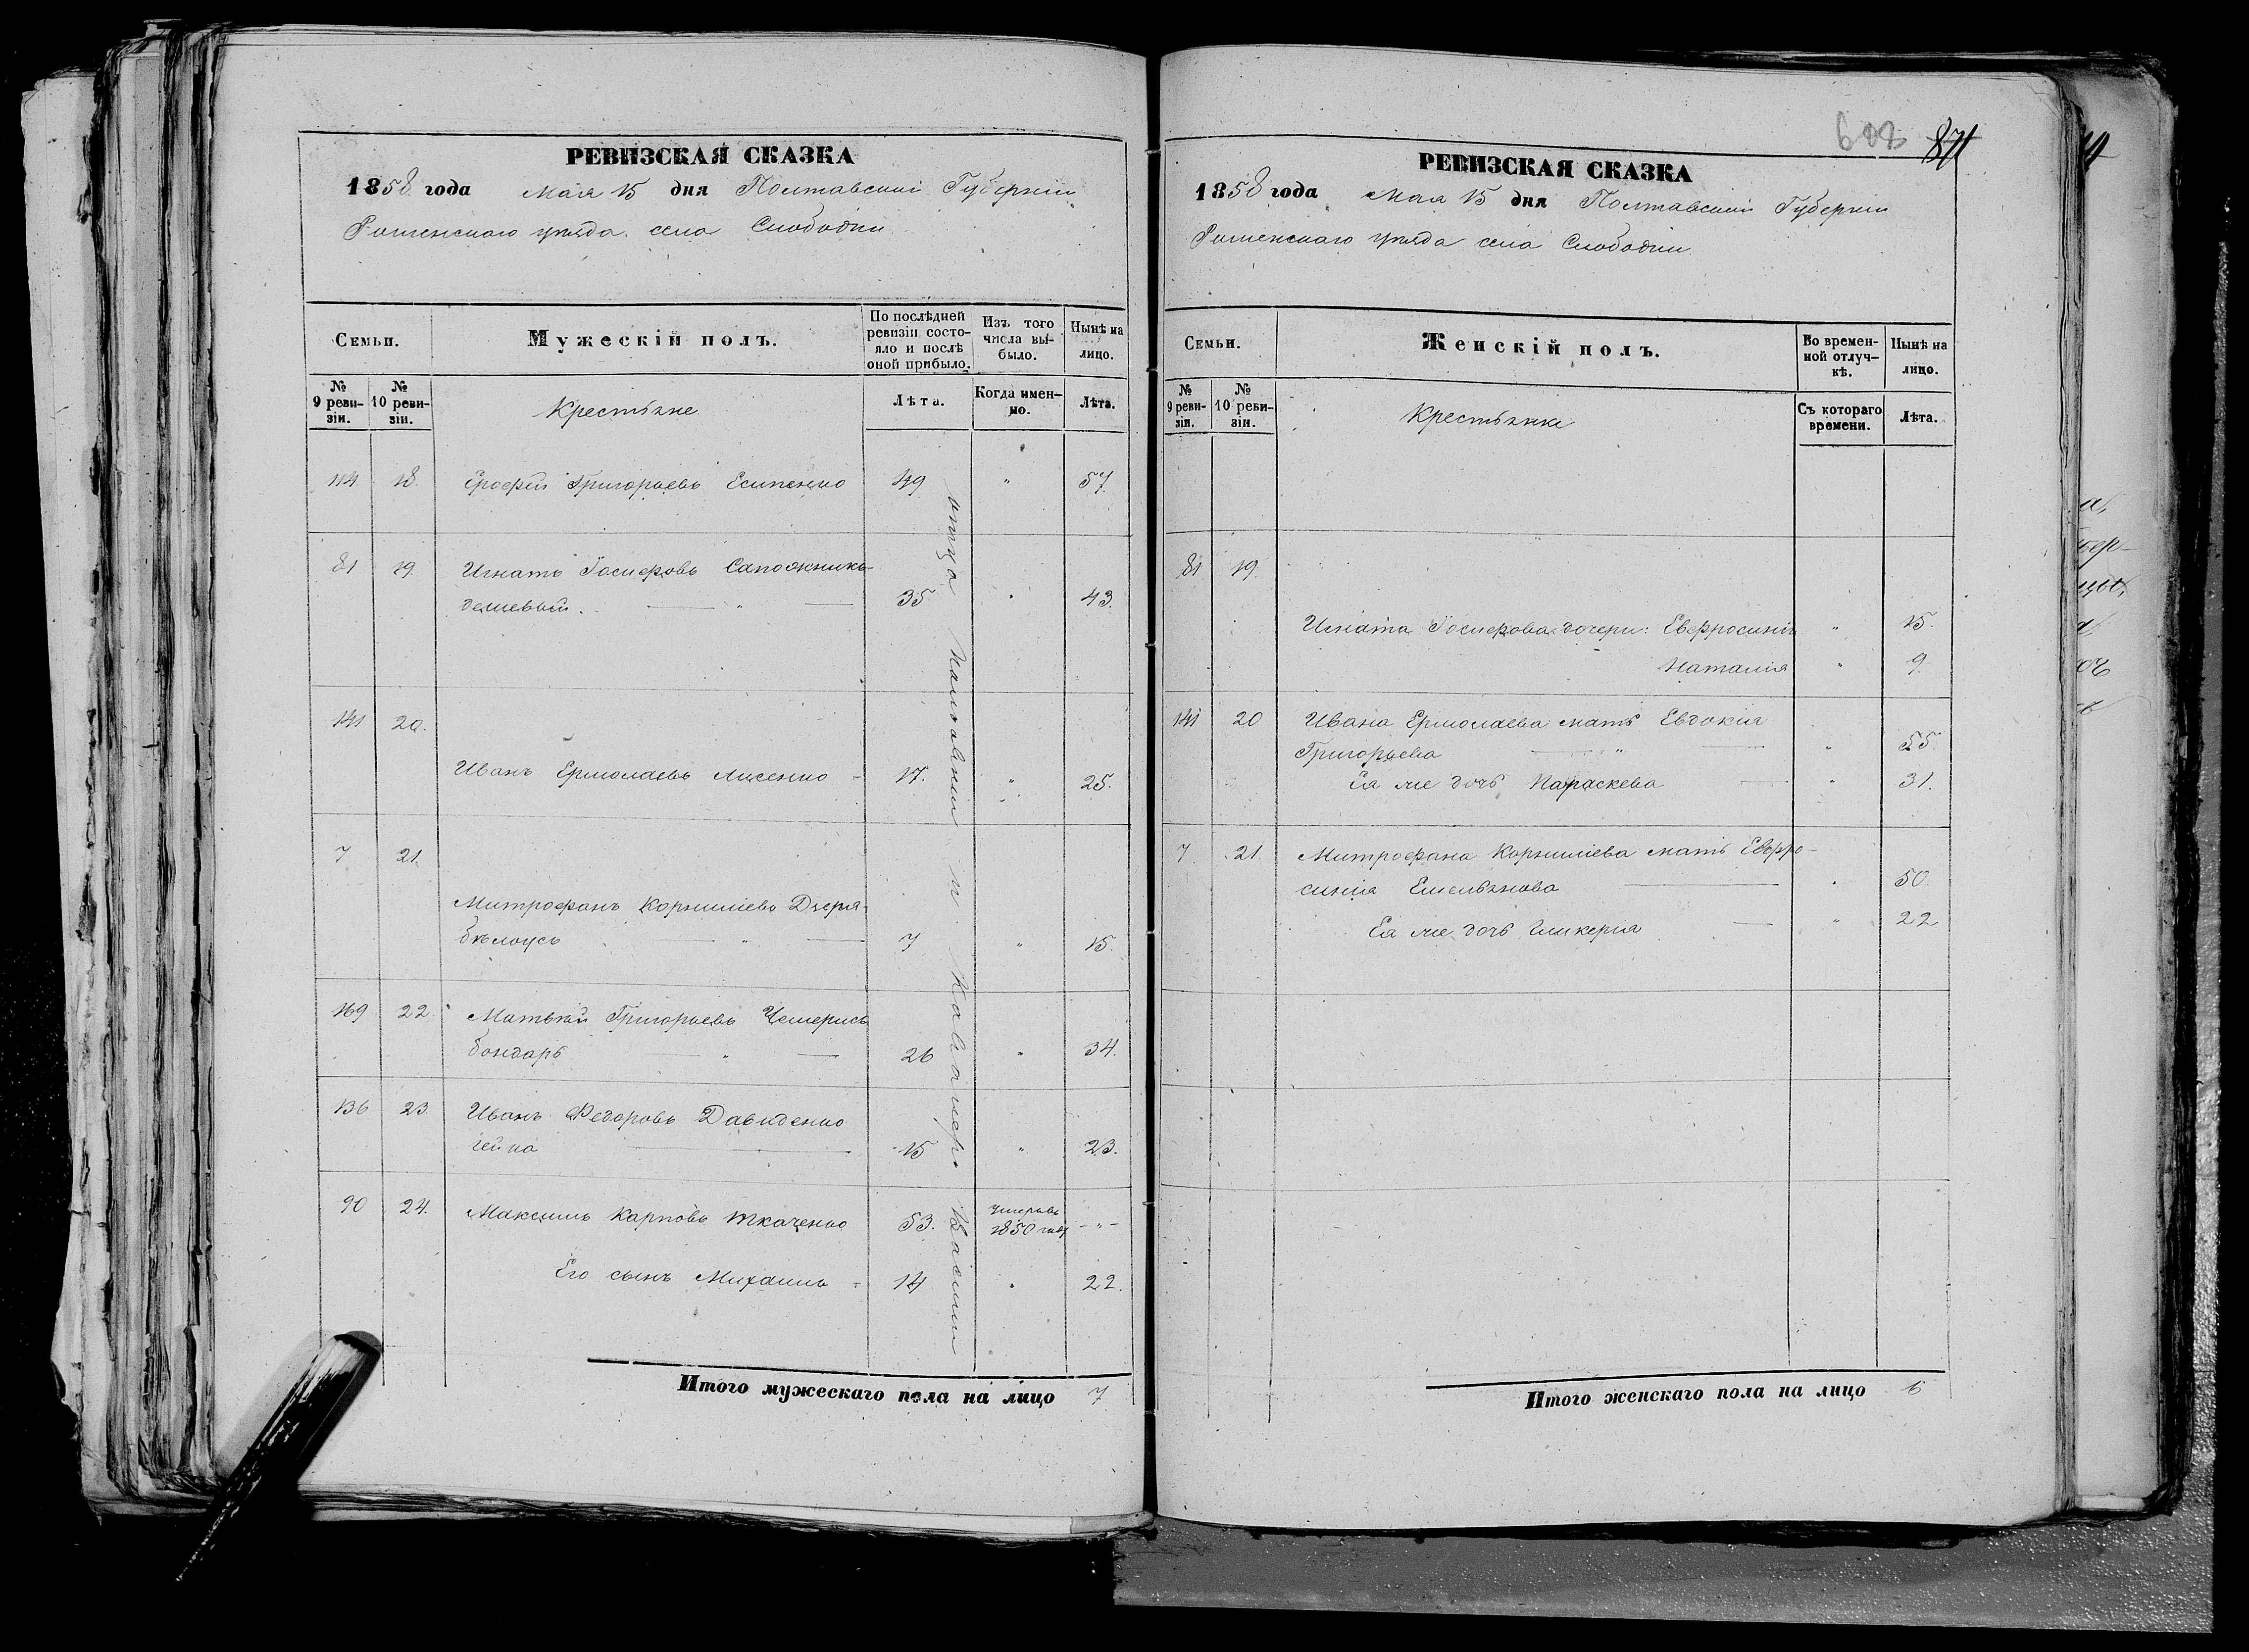 РЕВИЗСКАЯ СКАЗКА
1858 года Мая 15 дня Полтавской Губерніи
Роменскаго уѣзда села Слободки
Семьи.
Мужескій полъ.
По послѣдней ревизіи состояло и послѣ оной прибыло.
Изъ того числа выбыло.
Нынѣ на лицо.
№ 9 ревизіи.
№ 10 ревизіи.
Крестьяне
Лѣта.
Когда именно.
Лѣта.
114 18. Ерофей Григорьевъ Есипенко 49 " 57.
81 19. Игнатъ Іосифовъ Сапожникъ-
дешевый. — " — 35 " 43.
141 20.
Иванъ Ермолаевъ Лисенко - 17. " 25.
7 21.
Митрофанъ Корнилíевъ
бѣлоусъ — " — 7 " 15.
169 22. Матвѣй Григорьевъ Чемерисъ
бондарь — " — 26 " 34.
136 23. Иванъ Федоровъ Давиденко
гейка — 15 " 23.
90 24. Максимъ Карповъ Ткаченко 53. Умеръ въ 1850 году - " -
Его сынъ Михаилъ - 14 " 22.
Итого мужескаго пола на лицо 7
Василій
608 871
РЕВИЗСКАЯ СКАЗКА
1858 года Мая 15 дня Полтавской Губерніи
Роменскаго уѣзда села Слободки
Семьи.
Женскій полъ.
Во временной отлучкѣ.
Нынѣ на лицо.
№ 9 ревизіи.
№ 10 ревизіи.
Крестьянки
Съ котораго времени.
Лѣта.
81 19.
Игната Іосифова дочери: Евфросинія " 15.
Наталія " 9.
141 20 Ивана Ермолаева мать Евдокия
Григорьева — " — " 55.
Ея же дочь Параскева — " 31.
7. 21. Митрофана Корниліева мать Евфро-
синія Емельянова — " 50.
Ея же дочь Гликерия — " 22
Итого женскаго пола на лицо 6